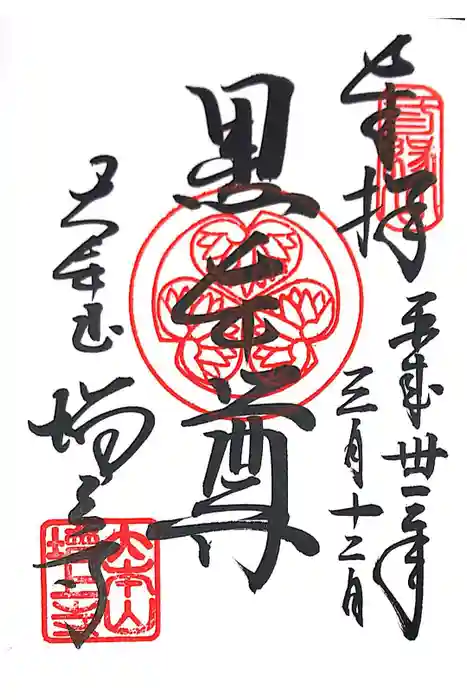 奉拝
平成卅一年
三月十二日
黒本尊
大本山
増上寺
三縁山
大本山
増上寺